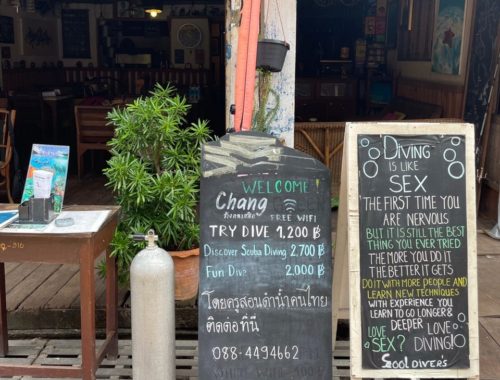 WELCOME!
Chang
FREE WIFI
TRY DIVE 1,200 ฿
Discover Scuba Diving 2,700 ฿
Fun Dive 2,000 ฿
โดยครูสอนดำน้ำคนไทย
ติดต่อที่นี่
088-4494662
DIVING
IS LIKE
SEX
THE FIRST TIME YOU
ARE NERVOUS
BUT IT IS STILL THE BEST
THING YOU EVER TRIED
THE MORE YOU DO IT
THE BETTER IT GETS
DO IT WITH MORE PEOPLE AND
LEARN NEW TECHNIQUES
WITH EXPERIENCE YOU
LEARN TO GO LONGER &
DEEPER
LOVE SEX? LOVE DIVING!